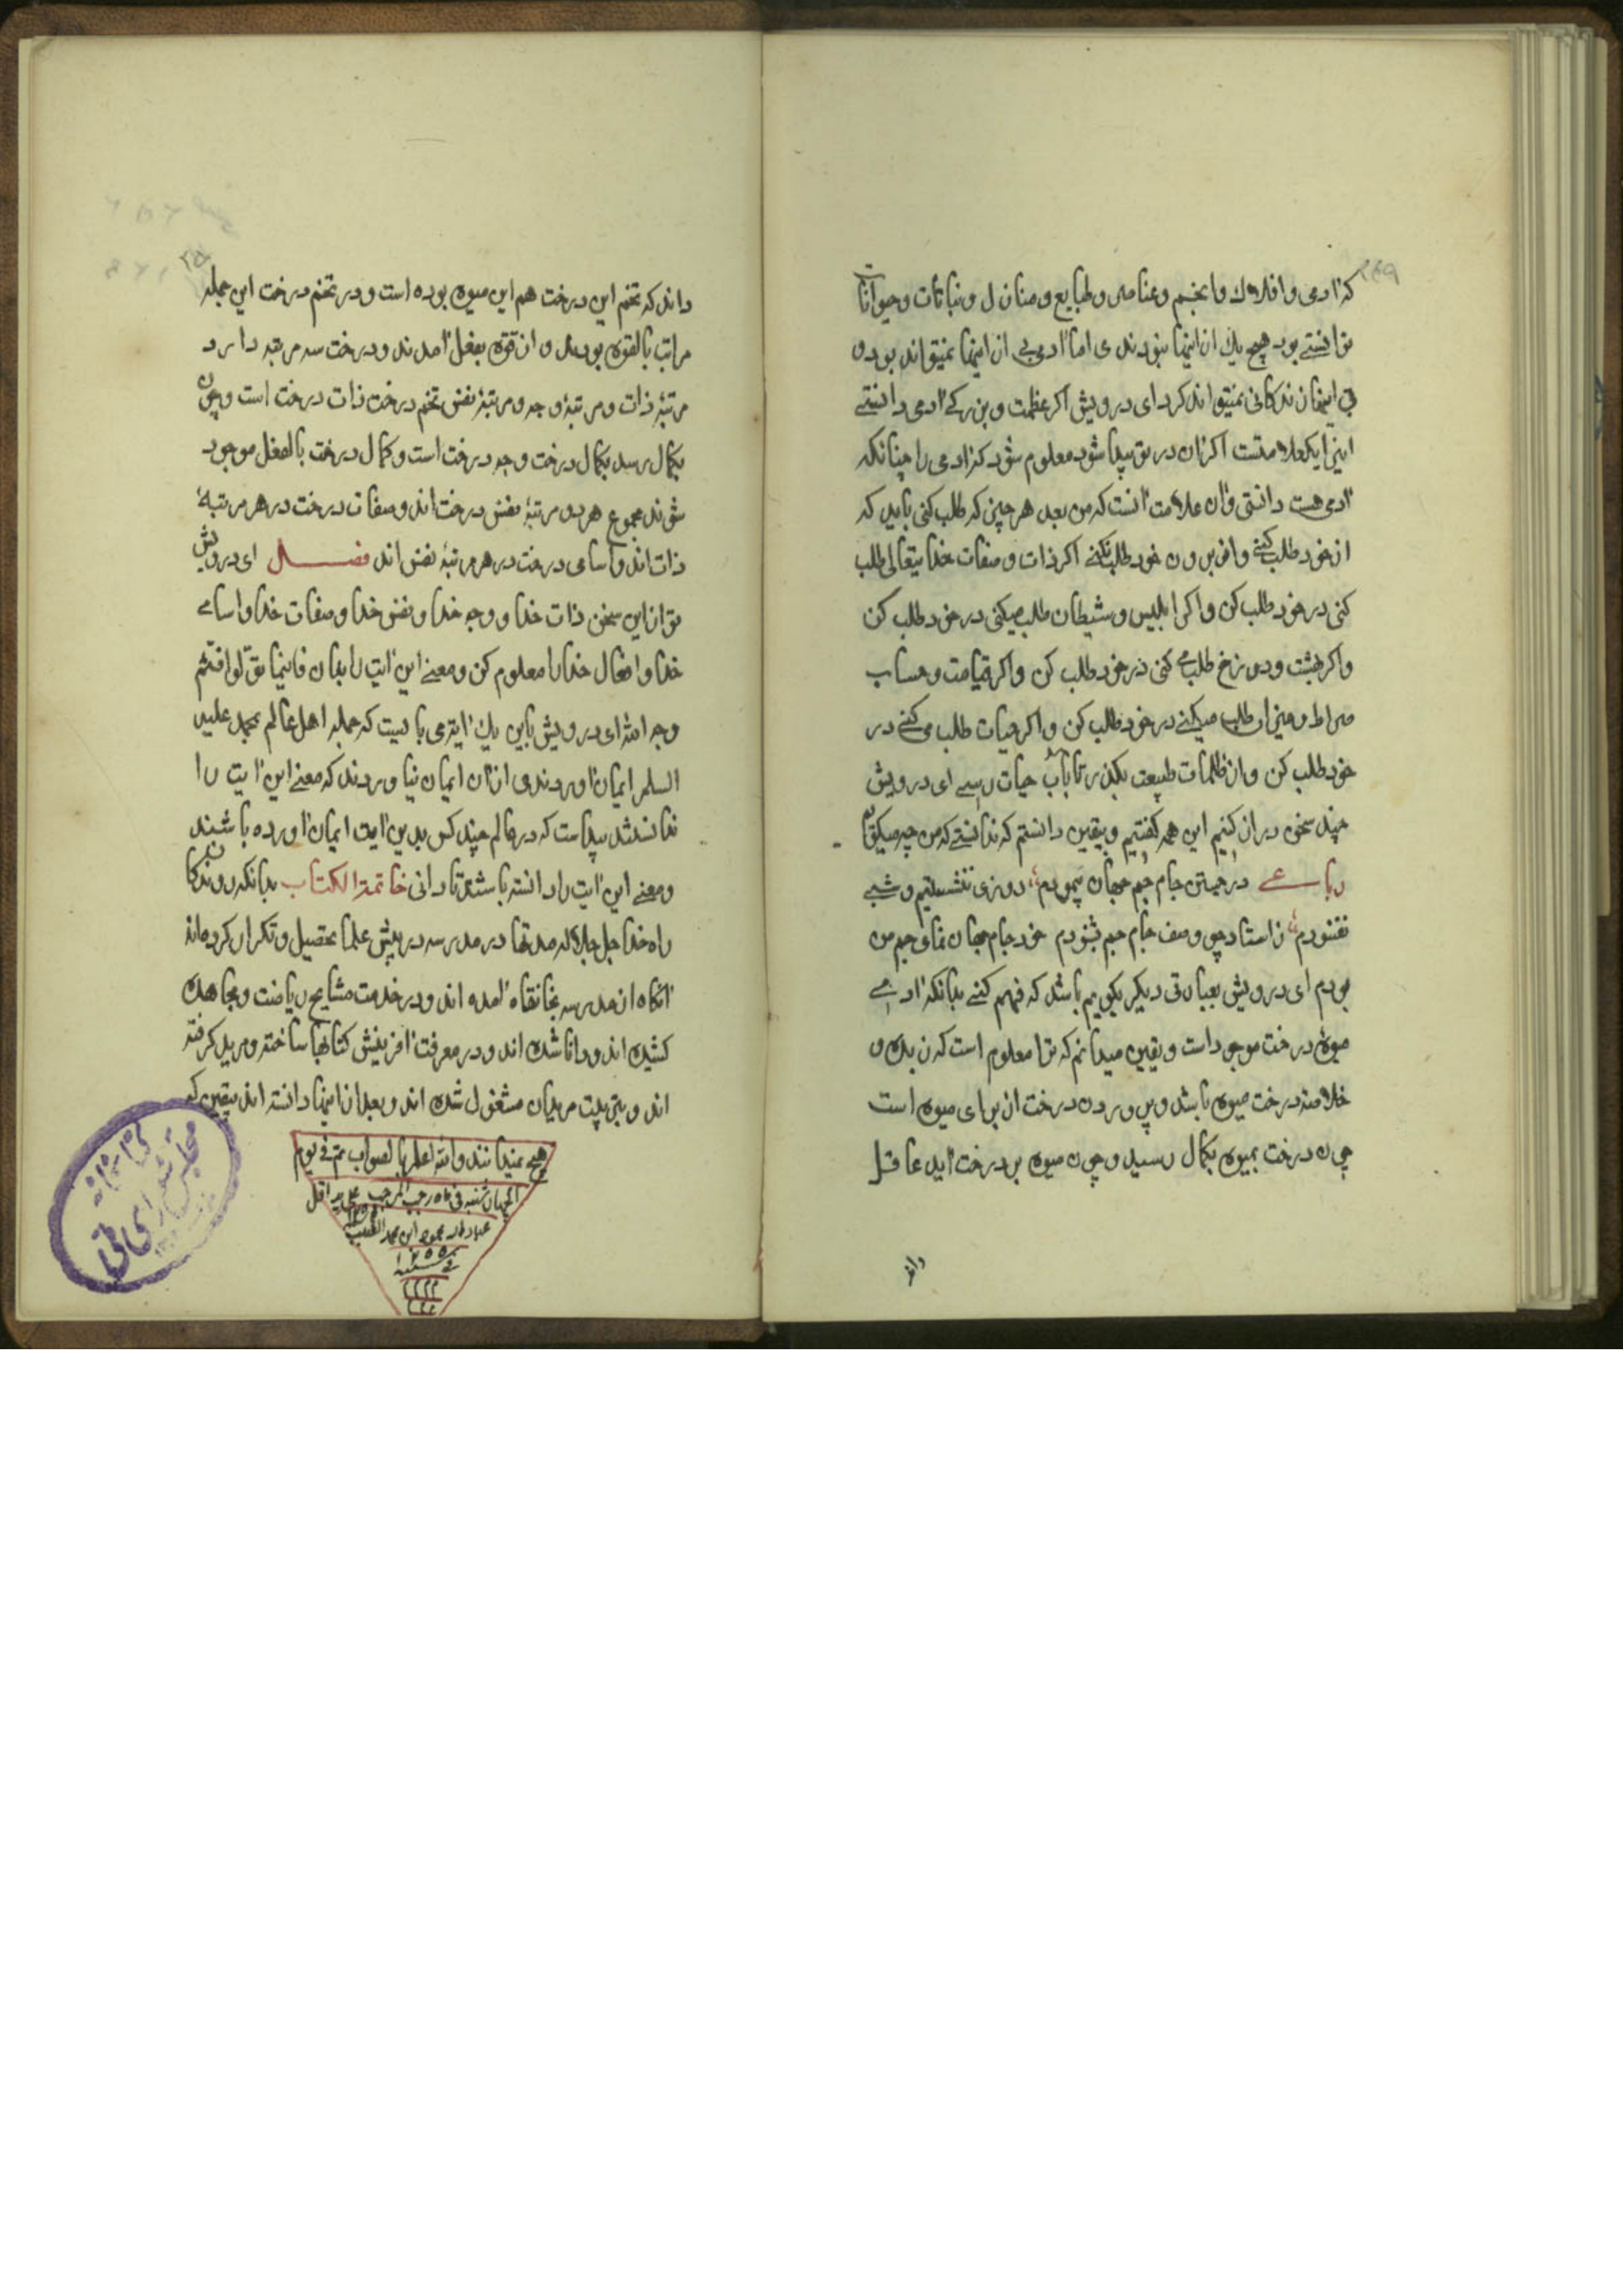 که ادمی و افلاک و انجم و عناصر و طبایع و منازل و نباتات و حیوانات
توانستی بود هیچ یک ازاینها نبودندی اما ادمی بی ازاینها نمیتواند بود و
بی اینها زندکانی نمیتواند کرد ای درویش اکر عظمت و بزرکی ادمی دانستی
اینرا یکعلامتست اکر آن در تو پیدا شود معلوم شود که ادمی را چنانکه
ادمی هست دانستی و آن علامت آنست که من بعد هر چیز که طلب کنی باید که
از خود طلب کنی و از برون خود طلب نکنی اکر ذات و صفات خدایتعالی طلب
کنی در خود طلب کن و اکر ابلیس و شیطان طلب میکنی در خود طلب کن
و اکر بهشت و دوزخ طلب می کنی در خود طلب کن و اکر قیامت و حساب
صراط و میزان طلب میکنی در خود طلب کن و اکر حیات طلب می کنی در
خود طلب کن و از ظلمات طبیعت بکذر تا بآب حیات رسی ای درویش
چند سخن دراز کنیم این همه کفتیم و بیقین دانستم که ندانستی که من چه میکویم
رباعی در جستن جام جم جهان پیمودم روزی ننشستیم و شبی
نغنودم ز استاد چو وصف جام جم بشنودم خود جام جهان نمای جم من
بودم ای درویش بعبارتی دیکر بکویم باشد که فهم کنی بدانکه ادمی
میوه درخت موجودات و یقین میدانم که ترا معلوم است که زبده و
خلاصه درخت میوه باشد و پروردن درخت از برای میوه است
چون درخت بمیوه بکمال رسید و چون میوه بر درخت اید عاقل
داند
داند که تخم این درخت هم این میوه بوده است و در تخم درخت این جمله
مراتب بالقوه بودند و از قوه بفعل امدند و درخت سه مرتبه دارد
مرتبه ذات و مرتبه وجه و مرتبه نفس تخم درخت ذات درخت است و چون
بکمال رسد بکمال درخت وجه درخت است و کمال درخت بالفعل موجود
شوند مجموع هر دو مرتبه نفس درخت اند و صفات درخت در هر مرتبه
ذات اند و اسامی درخت در هر مرتبه نفس اند فصل ای درویش
تو از این سخن ذات خدا و وجه خدا و نفس خدا و صفات خدا و اسامی
خدا و افعال خدا را معلوم کن و معنی این ایت را بدان فاینما تولوا فثم
وجه الله ای درویش باین یک ایتدی بایست که جمله اهل عالم بمحمد علیه
السلم ایمان اوردندی ازان ایمان نیاوردند که معنی این ایت را
ندانستند پیداست که در عالم چند کس بدین ایت ایمان اورده باشند
و معنی این ایت را دانسته باشند تا دانی خاتمة الکتاب بدانکه روندکان
راه خدا جل جلاله مدتها در مدرسه در پیش علما تحصیل و تکرار کرده اند
آنکاه از مدرسه بخانقاه امده اند و در خدمت مشایخ ریاضت و مجاهده
کشیده اند و دانا شده اند و در معرفت افرینش کتابها ساخته و مرید کرفته
اند و بتربیت مریدان مشغول شده اند و بعد از اینها دانسته اند بیقین که
هیچ نمیدانند والله اعلم بالصواب تم فی یوم
چهارشنبه فی ماه رجب المرجب علی ید اقل
عباد الله محمود ابن محمد
۱۲۵۵